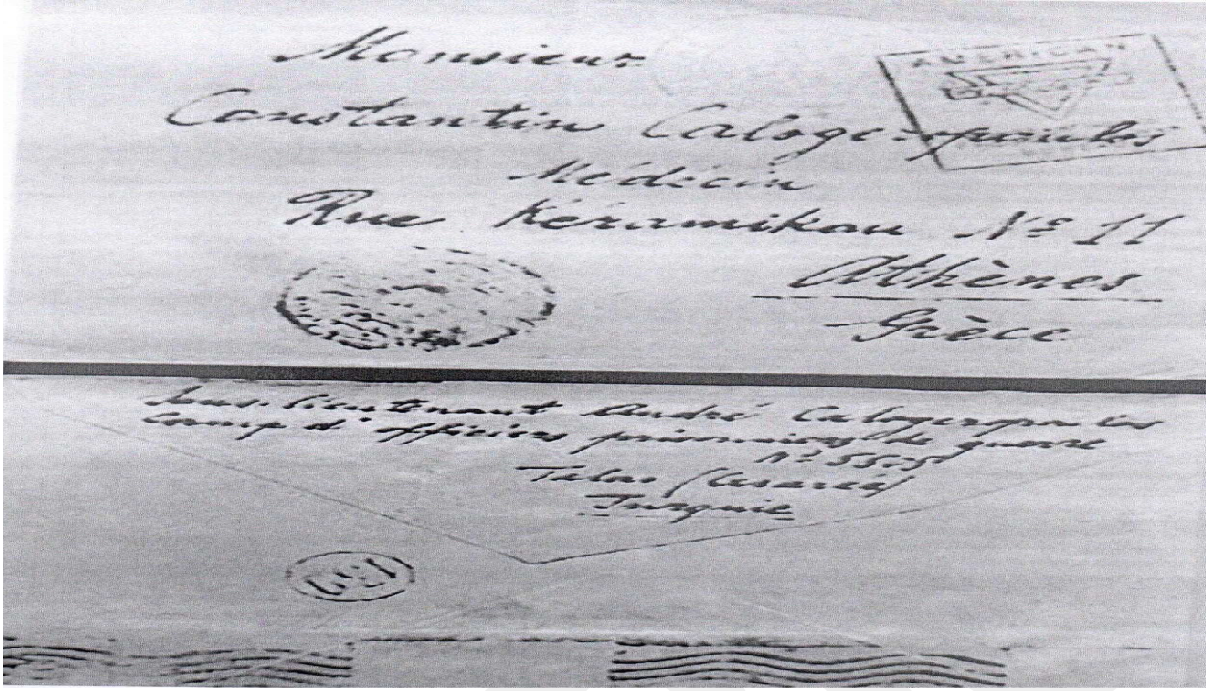 AMERICAN
Monsieur
Constantin Calogeropoulos
Médécin
Rue Kéramikou Nº 11
Athènes
Grèce
Sous-lieutenant André Calogeropoulos
camp d'officiers prisonniers de guerre
Nº 5525
Talas (Cesarée)
Turquie